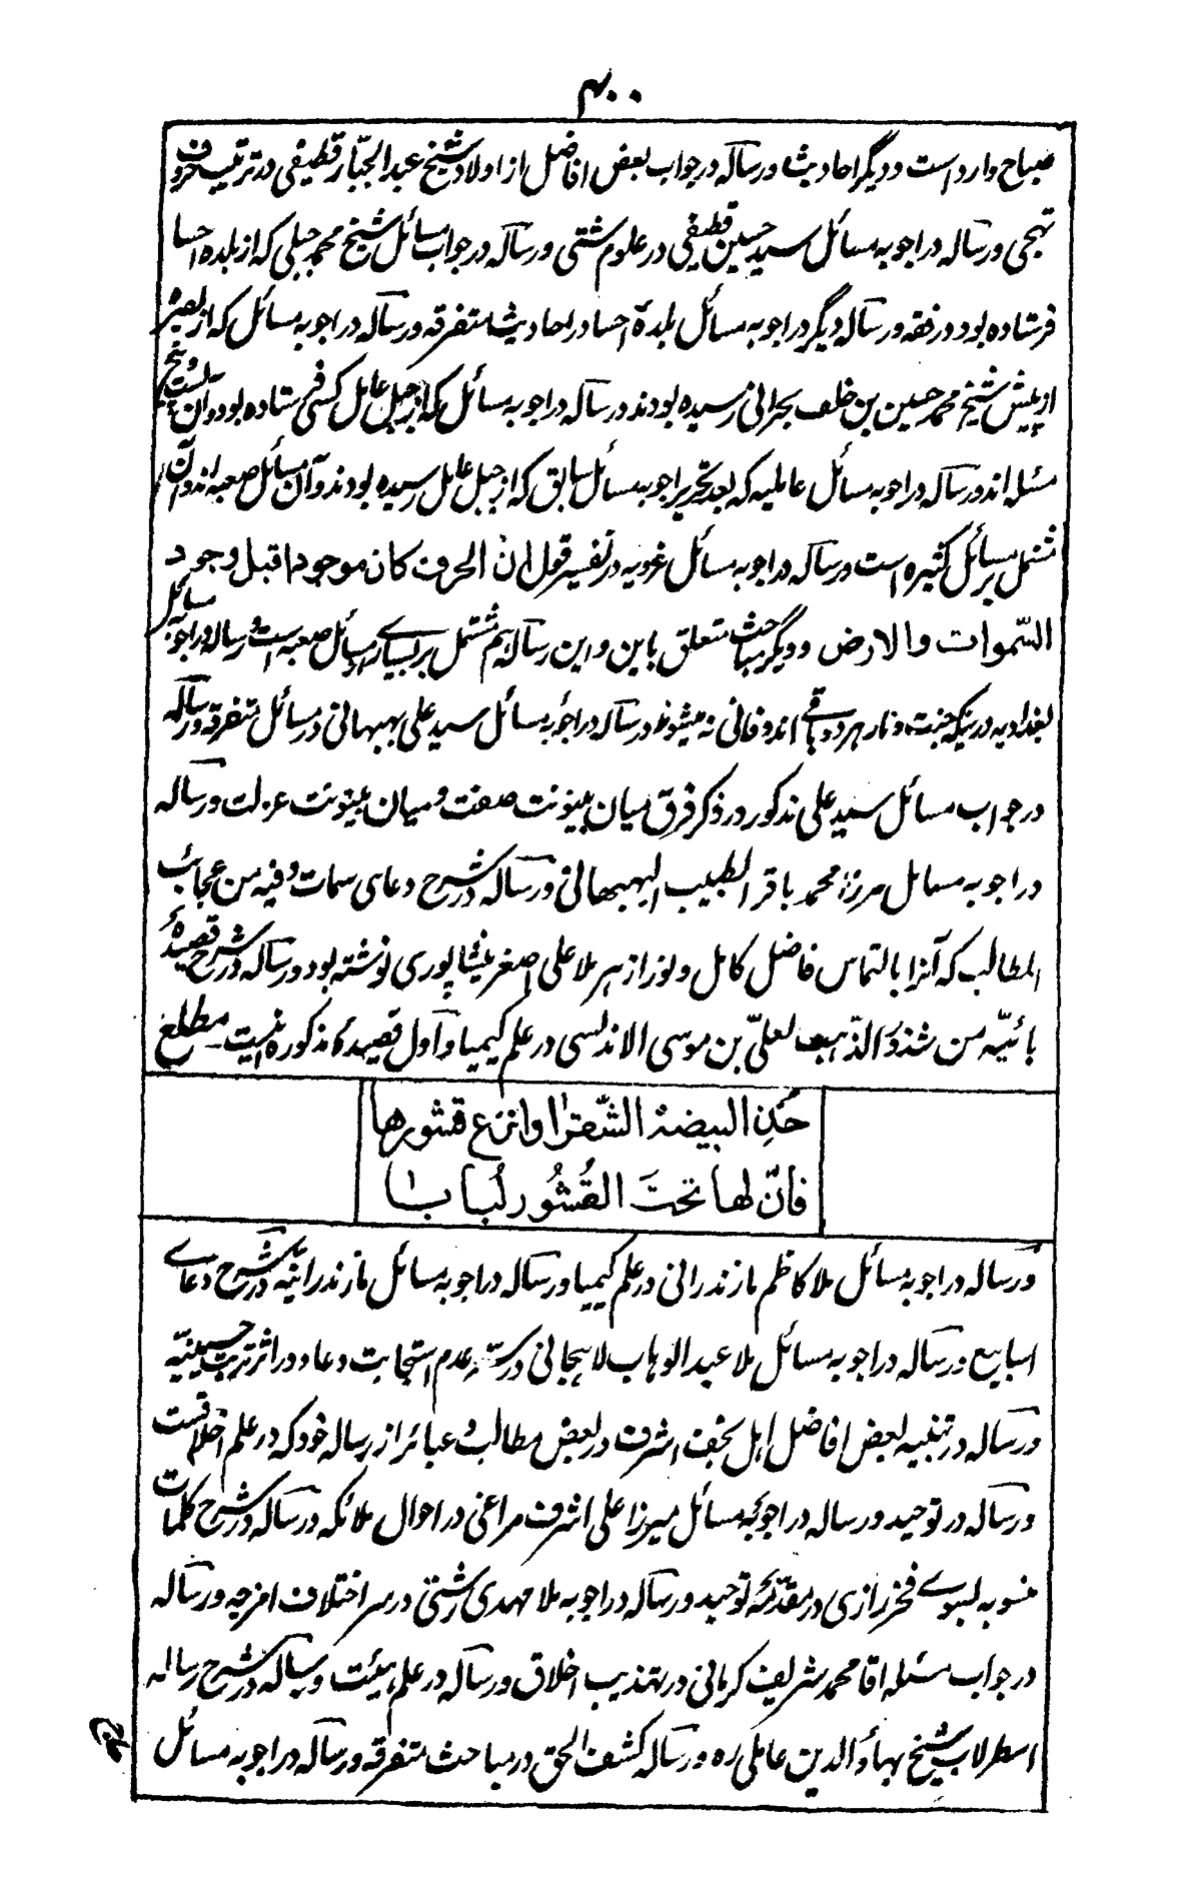 ۴۰۰
صباح وارد است و دیگر احادیث و رساله در جواب بعض افاضل از اولاد شیخ عبد الجبّار قطیفی در ترتیب حروف
تهجی و رساله در اجوبه مسائل سید حسین قطیفی در علوم شتی و رساله در جواب مسائل شیخ محمد جبلی که از بلده احسا
فرستاده بود در فقه و رساله دیگر در اجوبه مسائل بلدهٔ احسا در احادیث متفرقه و رساله در اجوبه مسائل که از بصره
از پیش شیخ محمد حسین بن خلف بحرانی رسیده بودند و رساله در اجوبه مسائل که از جبل عامل کسی فرستاده بود و آن بیست و پنج
مسئله اند و رساله در اجوبه مسائل عاملیه که بعد تحریر اجوبه مسائل سابق که از جبل عامل رسیده بودند و آن مسائل صعبه اند و آن
مشتمل بر مسائل کثیره است و رساله در اجوبه مسائل غرویه در تفسیر قول ان الحرف کان موجودا قبل وجود
السّموات والارض و دیگر مباحث متعلق باین و این رساله هم مشتمل بر بسیارے از مسائل صعبه است و رساله در اجوبه مسائل
بغدادیه در نیکه جنت و نار هر دو باقے اند و فانی نه میشوند و رساله در اجوبه مسائل سید علی بهبهانی در مسائل متفرقه و رساله
در جواب مسائل سید علی مذکور در ذکر فرق میان بینونت صفت و میان بینونت عزلت و رساله
در اجوبه مسایل مرزا محمد باقر الطبیب البهبهانی و رساله در شرح دعای سمات و فیه من عجائب
المطالب که آنرا بالتماس فاضل کامل و نور ازهر ملا علی اصغر نیشاپوری نوشته بود و رساله در شرح قصیدهٔ
بائیّه من شذور الذّهب لعلیّ بن موسی الاندلسی در علم کیمیا و اول قصیدهٔ مذکوره اینست مطلع
خُذِ البیضة الشّقرا وانزع قشورها
فانّ لها تحتَ القُشُور لُبابا
و رساله در اجوبه مسائل ملا کاظم مازندرانی در علم کیمیا و رساله در اجوبه مسائل مازندرانیّه و رساله در شرح دعاے
اسابیع و رساله در اجوبه مسائل ملا عبد الوهاب لاهجانی در سّر عدم استجابت دعا و در اثر تربت حسینیّه
و رساله در تنبیه بعض افاضل اهل نجف اشرف در بعض مطالب و عبائر از رساله خود که در علم اخلاقست
و رساله در توحید و رساله در اجوبه مسائل میرزا علی اشرف مراغی در احوال ملائکه و رساله در شرح کلمات
منسوبه بسوے فخر رازی در مقدّمه توحید و رساله در اجوبه ملا مهدی رشتی در سر اختلاف امزجه و رساله
در جواب مسئله اقا محمد شریف کرمانی در تهذیب اخلاق و رساله در علم هیئت و رساله در شرح رساله
اسطرلاب شیخ بهاؤ الدین عاملی ره و رساله کشف الحق در مباحث متفرقه و رساله در اجوبه مسائل